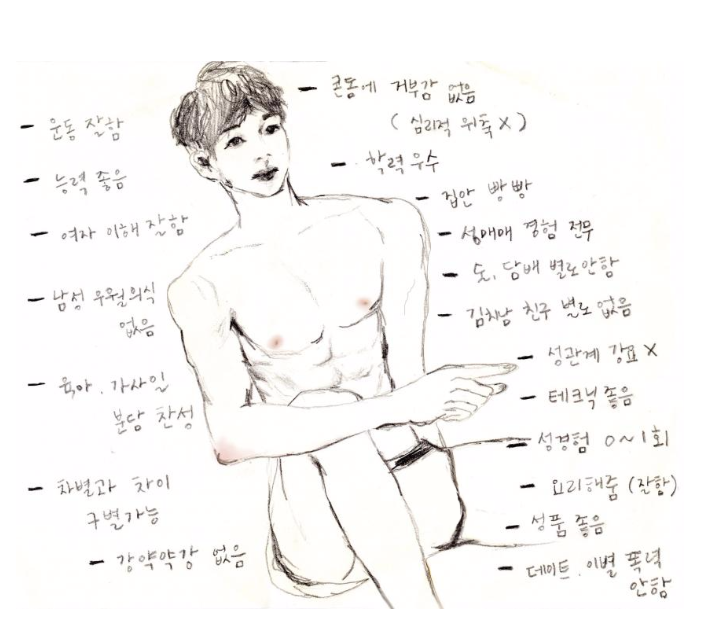 - 운동 잘함
- 능력 좋음
- 여자 이해 잘함
- 남성 우월의식
없음
- 육아. 가사일
분담 찬성
- 차별과 차이
구별가능
- 강약약강 없음
- 콘돔에 거부감 없음
( 심리적 위축 X )
- 학력 우수
- 집안 빵빵
- 성매매 경험 전무
- 술, 담배 별로안함
- 김치남 친구 별로 없음
- 성관계 강요 X
- 테크닉 좋음
- 성경험 0~1회
- 요리해줌 (잘함)
- 성품 좋음
- 데이트. 이별 폭력
안함